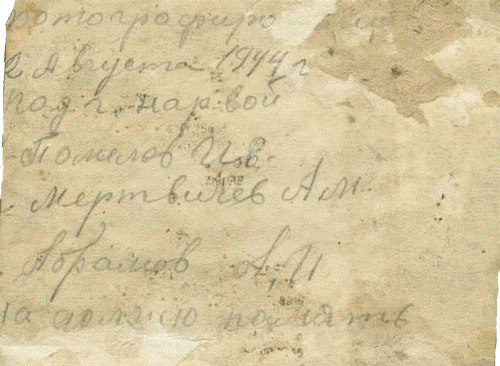 Фотографиро
2 Августа 1944 г
Под г. нарвой
Помелов И.В.
Мертвичев А.М.
Абрамов А.И
на долгию память